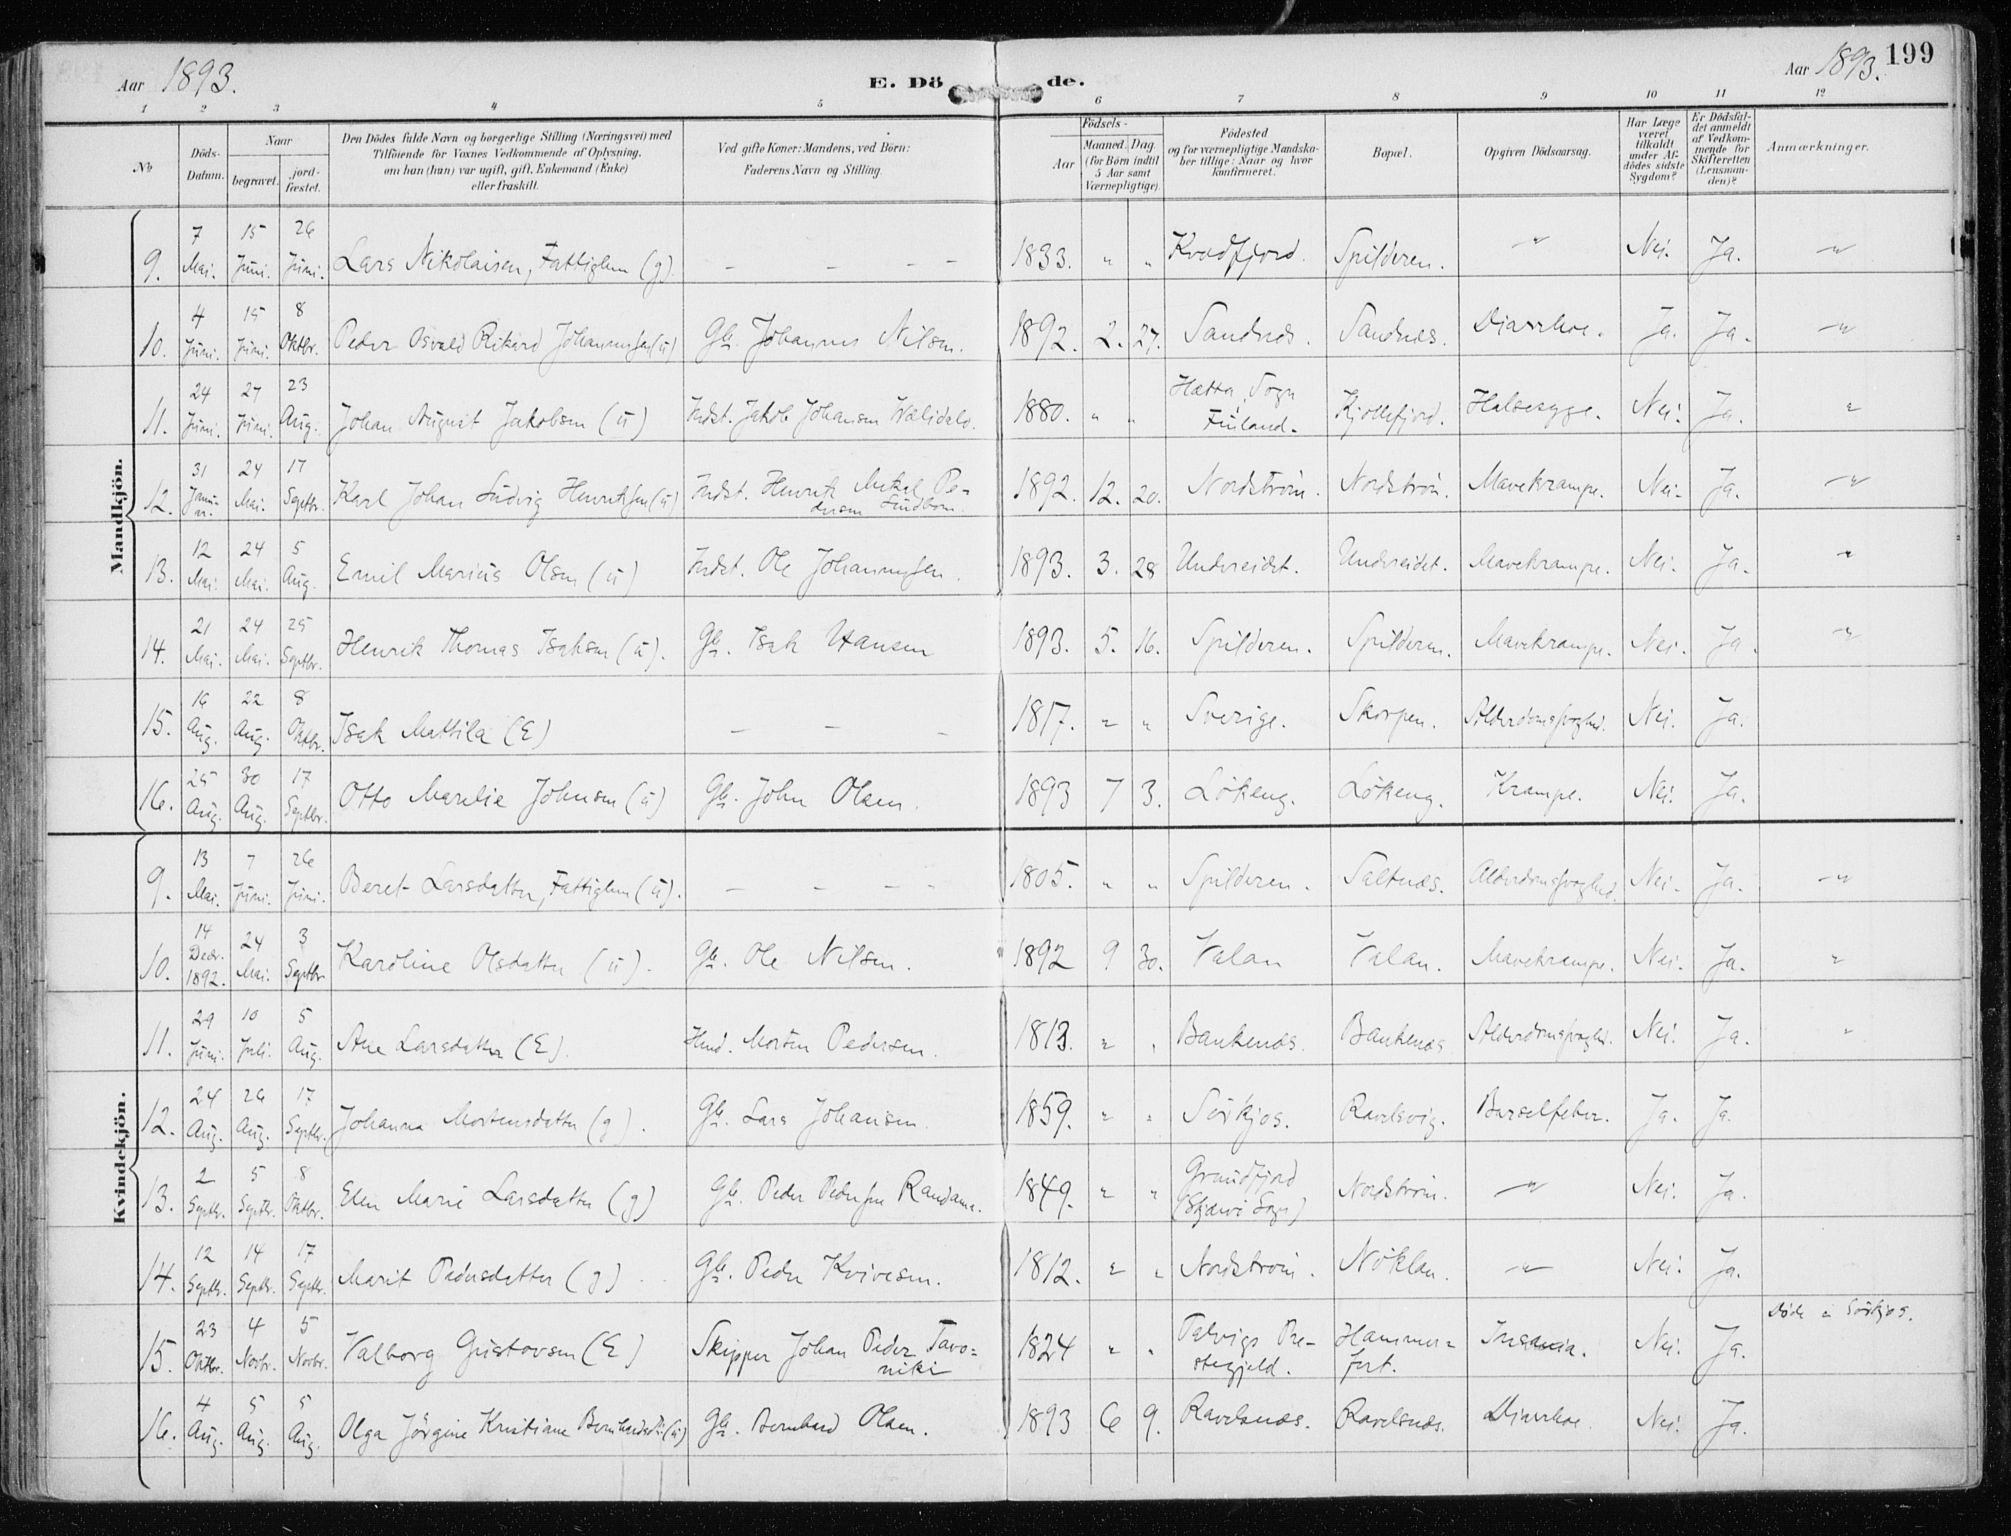 Aar 1893. E. Dö de. Aar 1893. 199
1 2 3 4 5 6 7 8 9 10 11 12
No. Döds-Datum. Naar begravet. jordfæstet. Den Dödes fulde Navn og borgerlige Stilling (Næringsvei) med Tilföiende for Voxnes Vedkommende af Oplysning, om han (hun) var ugift, gift, Enkemand (Enke) eller fraskilt. Ved gifte Koner: Mandens, ved Börn: Faderens Navn og Stilling. Födsels- Aar Maaned. Dag. (for Börn indtil 5 Aar samt Værnepligtige). Födested og for værnepligtige Mandskaber tillige: Naar og hvor konfirmeret. Bopæl. Opgiven Dödsaarsag. Har Læge været tilkaldt under Afdödes sidste Sygdom? Er Dödsfaldet anmeldt af Vedkommende for Skifteretten (Lensmanden)? Anmærkninger.
Mandkjön.
9. 7 Mai. 15 Juni. 26 Juni. Lars Nikolaisen, Fattiglem (g). — — — — 1833. " " Kvædfjord. Spilderen. " Nei. Ja. "
10. 4 Juni. 15 Juni. 8 Oktbr. Peder Osvald Rikard Johannessen (u) Gbr. Johannes Nilsen. 1892. 2. 27. Sandnes. Sandnes. Diarrhoe. Ja. Ja. "
11. 24 Juni. 27 Juni. 23 Aug. Johan August Jakobsen (u) Indst. Jakob Johansen 1880. " " Hætta Sogn Finland. Kjollefjord. Halsesyge. Nei. Ja. "
12. 31 Januar. 24 Mai. 17 Septbr. Karl Johan Ludvig Henriksen (u) Indst. Henrik Mikal Pedersen Lindbom. 1892. 12. 20. Nordstrøm. Nordstrøm. Mavekrampe. Nei. Ja. "
13. 12 Mai. 24 Mai. 5 Aug. Emil Marius Olsen (u) Indst. Ole Johannessen. 1893. 3. 28 Undereidet. Undereidet. Mavekrampe. Nei. Ja. "
14. 21 Mai. 24 Mai. 25 Septbr. Henrik Thomas Isaksen (u). Gbr. Isak Hansen 1893. 5. 16. Spilderen. Spilderen. Mavekrampe. Nei. Ja. "
15. 16 Aug. 22 Aug. 8 Oktbr. Isak Mattila (E) — — — 1817. " " Sverige. Skorpen. Alderdomssvaghed. Nei. Ja.
16. 25 Aug. 30 Aug. 17 Septbr. Otto Marelie Johnsen (u) Gbr. John Olsen. 1893 7 3. Løkeng. Løkeng. Krampe. Nei. Ja.
Kvindekjön.
9. 13 Mai. 7 Juni. 26 Juni. Beret Larsdatter, Fattiglem (u). — — — — 1805. " " Spilderen. Saltnæs. Alderdomssvaghed. Nei. Ja. "
10. 14 Decbr. 1892. 24 Mai. 3 Septbr. Karoline Olsdatter (u). Gbr. Ole Nilsen. 1892 9 30. Valan Valan. Mavekrampe. Nei. Ja. "
11. 29 Juni. 10 Juli. 5 Aug. Ane Larsdatter (E). Hmd. Morten Pedersen. 1813. " " Bankenæs. Bankenæs Alderdomssvaghed. Nei. Ja. "
12. 24 Aug. 26 Aug. 17 Septbr. Johanna Mortensdatter (g). Gbr. Lars Johansen. 1859. " " Sørkjos. Ravelsvig. Barselfeber. Ja. Ja.
13. 2 Septbr. 5 Septbr. 8 Oktbr. Elen Marie Larsdatter (g) Gbr. Peder Pedersen Randama. 1849. " " Grundfjord (Skjærvø Sogn) Nordstrøm. " Nei. Ja.
14. 12 Septbr. 14 Septbr. 17 Septbr. Marit Pedersdatter (g) Gbr. Peder Kvivesen. 1812. " " Nordstrøm. Nöklan. " Nei. Ja.
15. 23 Oktbr. 4 Novbr. 5 Novbr. Valborg Gustavsen (E) Skipper Johan Peder Tavoniki 1824 " " Talvigs Prestegjeld. Hammerfest. Insania. Nei. Ja. Døde i Sørkjos.
16. 4 Aug. 5 Aug. 5 Aug. Olga Jörgine Kristiane Bernhardsdtr. (u) Gbr. Bernhard Olsen. 1893 6 9. Ravelsnæs. Ravelsnæs. Diarrhoe Nei. Ja.